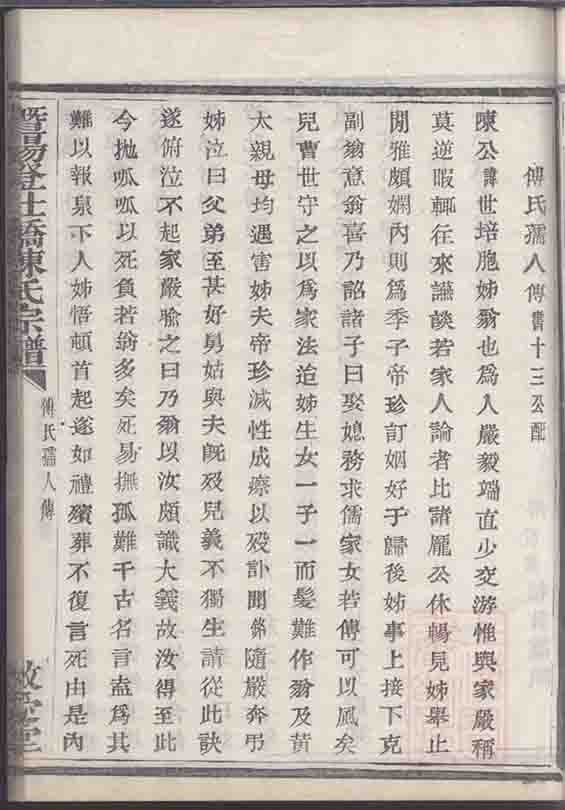 傅氏孺人傳 書十三公配
陳公諱世培胞姊翁也為人嚴毅端直少交游惟與家嚴稱
莫逆暇輒往來讌談若家人論者比諸龐公休暢見姊舉止
閒雅頗嫻內則為季子帝珍訂姻好于歸後姊事上接下克
副翁意翁喜乃詔諸子曰娶媳務求儒家女若傅可以風矣
兒曹世守之以為家法迨姊生女一子一而髮難作翁及黃
太親母均遇害姊夫帝珍滅性成瘵以歿訃聞弟隨嚴奔弔
姊泣曰父弟至甚好舅姑與夫既歿兒義不獨生請從此訣
遂俯泣不起家嚴喻之曰乃翁以汝頗識大義故汝得至此
今拋呱呱以死負若翁多矣死易撫孤難千古名言盍為其
難以報泉下人姊悟頓首起遂如禮殯葬不復言死由是內
暨陽登仕橋陳氏宗譜
傅氏孺人傳
堂